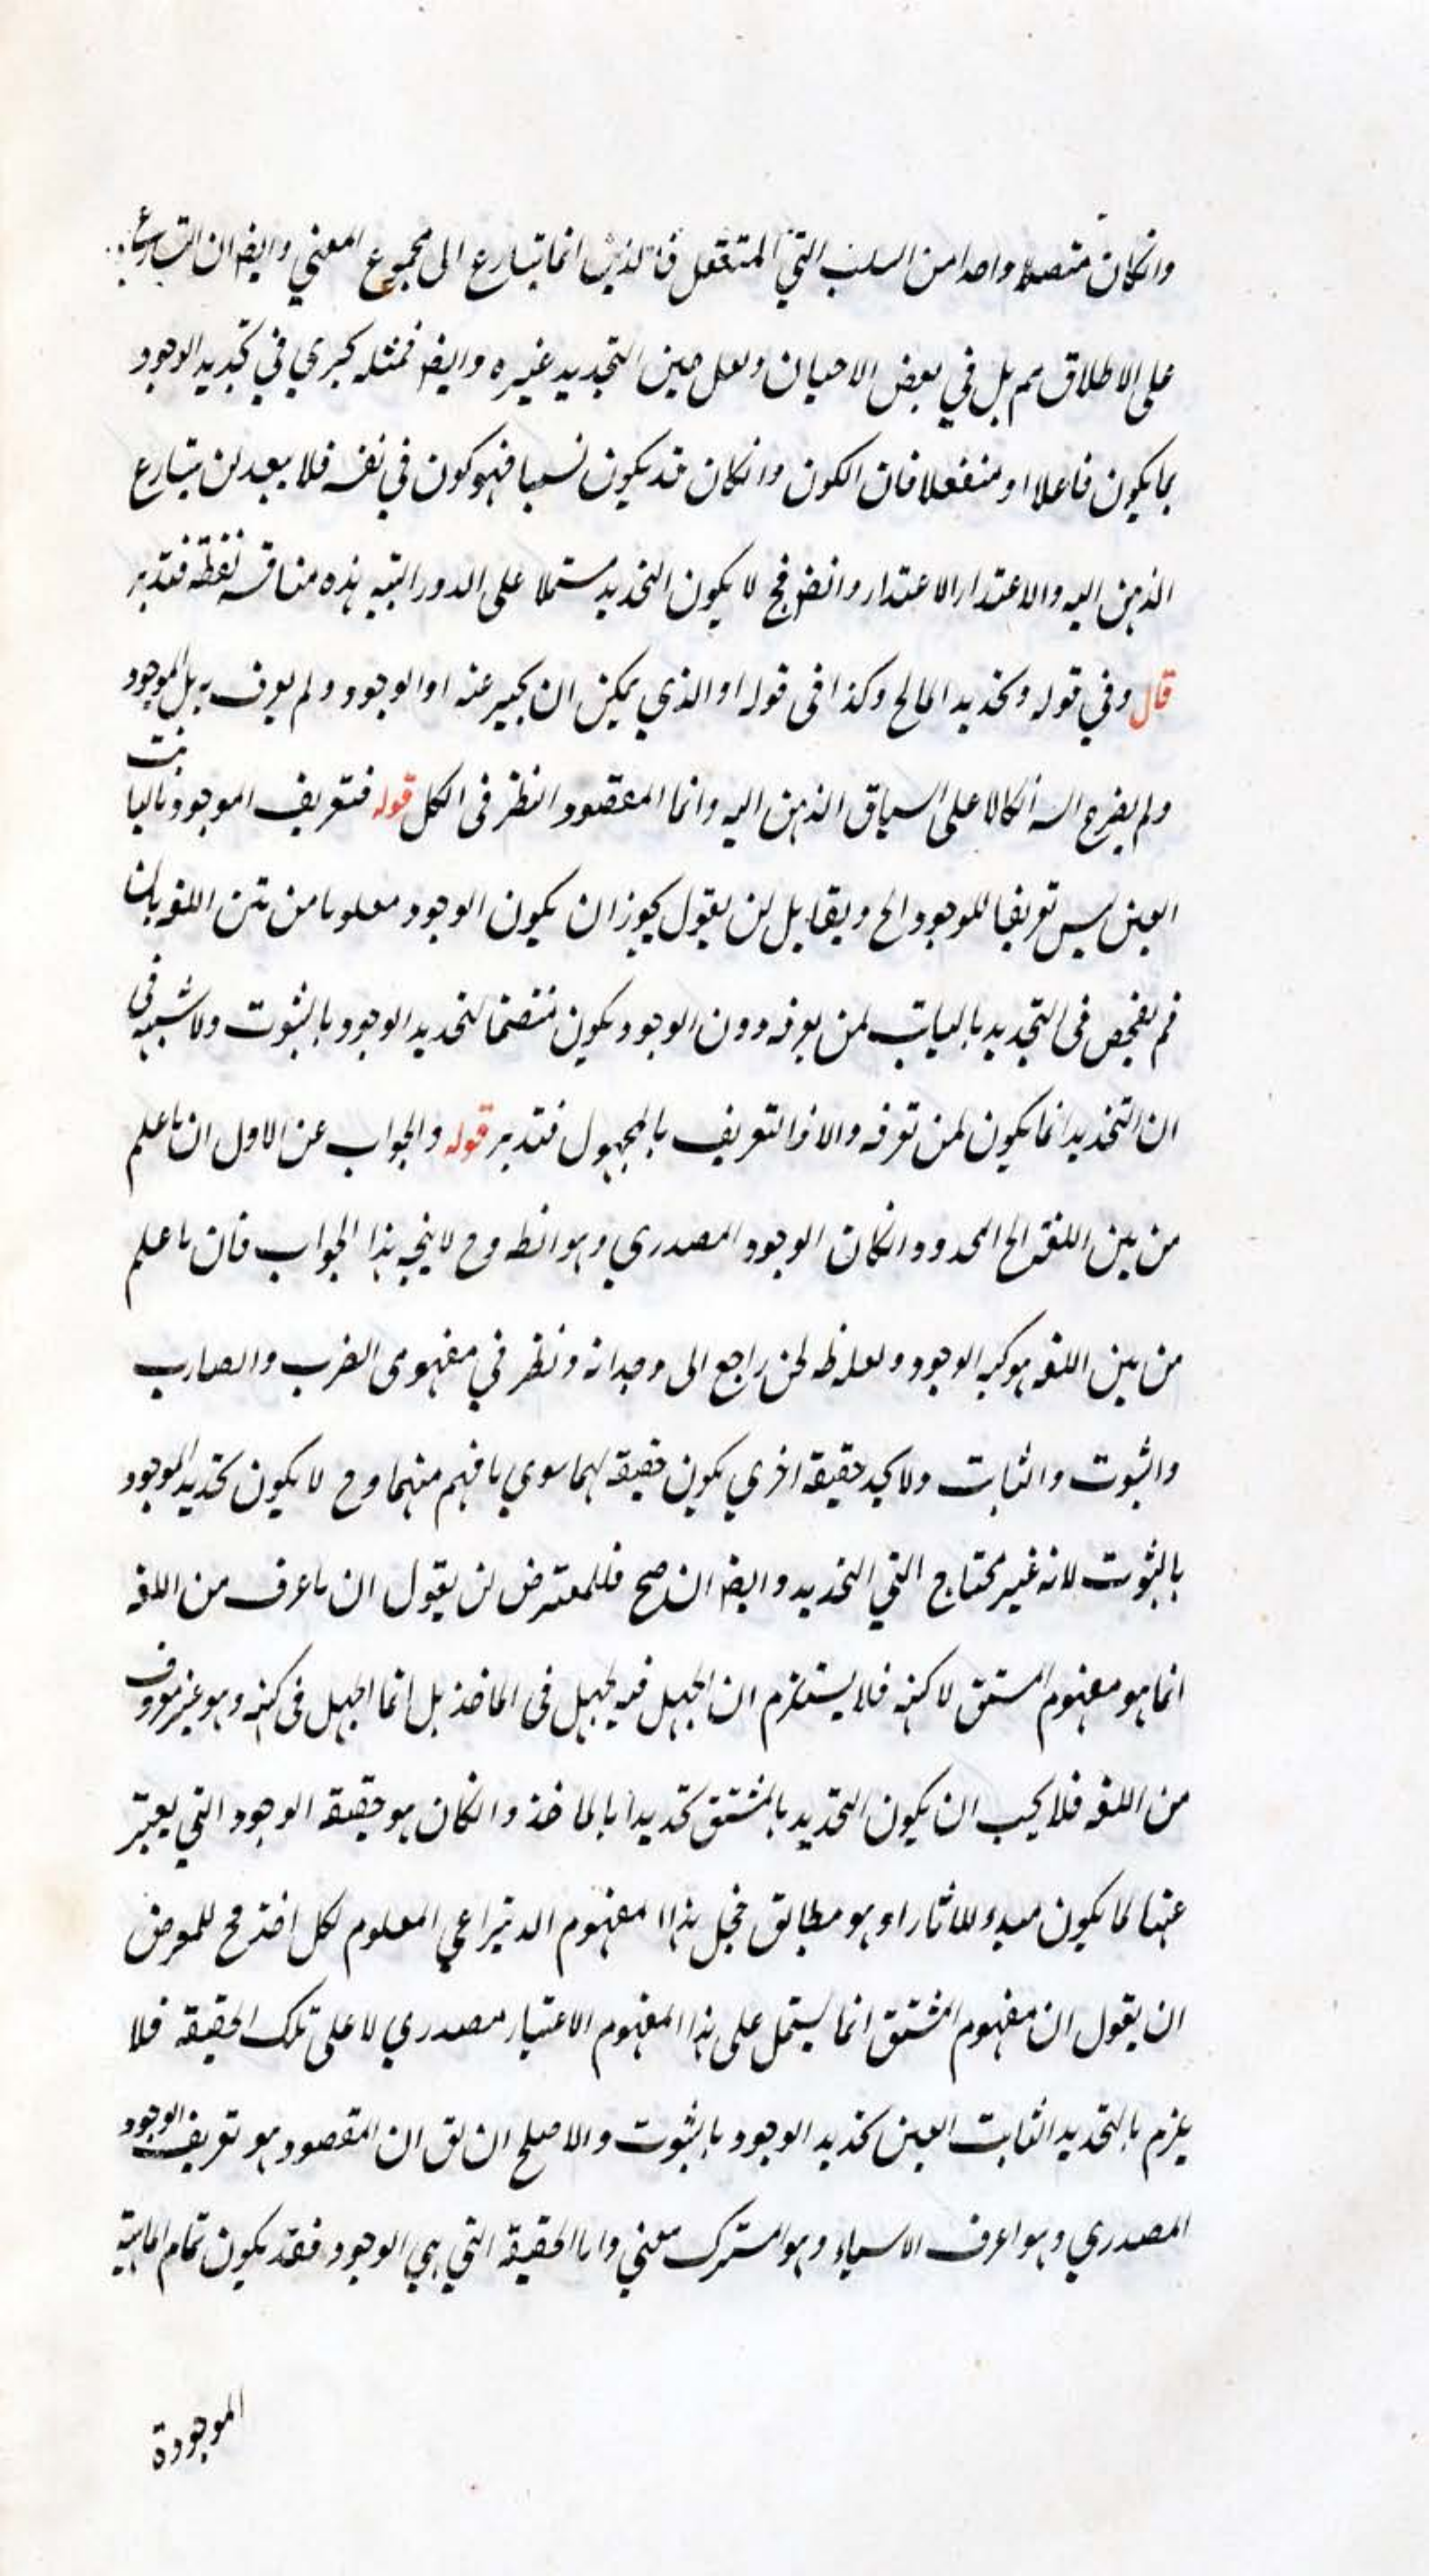 وانكان متصلا واحدا من السلب التي المتعقل فالذهن انما يتبارع الى مجموع المعني وايضا ان التبارع
على الاطلاق مم بل في بعض الاحيان ولعل حين التحديد غيره وايضا فمثله كبري في تحديد الوجود
بما يكون فاعلا او منفعلا فان الكون وانكان قد يكون نسبيا فهو كون في نفسه فلا يبعد ان يتبارع
الذهن اليه والاعتذار الاعتذار وايضا فح لا يكون التحديد مستملا على الدور البتيه هذه مناقشه لفظيه فتدبر
قال وفي قوله وتحديد المالح وكذا في قوله او الذي يمكن ان يخبر عنه اوالوجود ولم يعرف به بل الموجود
ولم يصرح اتكالا على السياق الذهن اليه وانما المقصود النظر في الكل قوله فتعريف الموجود بالثابت
العين ليس تعريفا للوجود الح ويقابل لن يقول يجوز ان يكون الوجود معلوما من متن اللغه بان
في التحديد بالثابت لمن يعرفه دون الوجود يكون متضمنا لتحديد الوجود بالثبوت ولا شبهه في
ان التحديد انما يكون لمن تعرفه والا فالتعريف بالمجهول فتدبر قوله والجواب عن الاول ان ما علم
من بين اللغه الح المحدود وانكان الوجود المصدري وهو الظ وح لا يتجه هذا الجواب فان ما علم
من بين اللغه هو كنه الوجود ولعله ظه لمن راجع الى وجدانه ونظر في مفهومى الضرب والضارب
والثبوت والثابت ولا يجد حقيقة اخري يكون حقيقة لهما سوي ما فهم منهما وح لا يكون تحديد الموجود
بالثبوت لانه غير محتاج التي التحديد وايضا ان صح فللمعترض لن يقول ان ما عرف من اللغه
انما هو مفهوم المستق لا كنهه فلا يستلزم ان الجهل فيه لجهل فى الماخذ بل انما الجهل فى كنهه وهو غير معروف
من اللغه فلا يجب ان يكون التحديد بالمشتق تحديدا بالماخذ وانكان هو حقيقة الوجود التي يعبر
عنها لما يكون مبدء للاثار او هو مطابق فجل هذا المفهوم الانتزاعي المعلوم لكل احد فح للمعرض
ان يقول ان مفهوم المشتق انما يستمل على هذا المفهوم الاعتبار مصدري لا على تلك الحقيقه فلا
يلزم بالتحديد الثابت العين تحديد الوجود بالثبوت والاصلح ان يق ان المقصود هو تعريف الوجود
المصدري وهو اعرف الاسياء وهو المسترك معني واما الحقيقة التي هي الوجود فقد يكون تمام الماهية
الموجودة